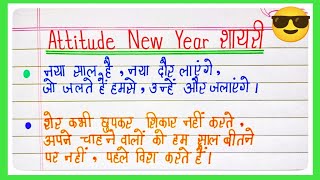 Attitude New Year शायरी
नया साल है, नया दौर लाएंगे,
जो जलते है हमसे, उन्हें और जलाएंगे।
शेर कभी छुपकर शिकार नहीं करते,
अपने चाहने वालों को हम साल बीतने
पर नहीं, पहले विश करते हैं।